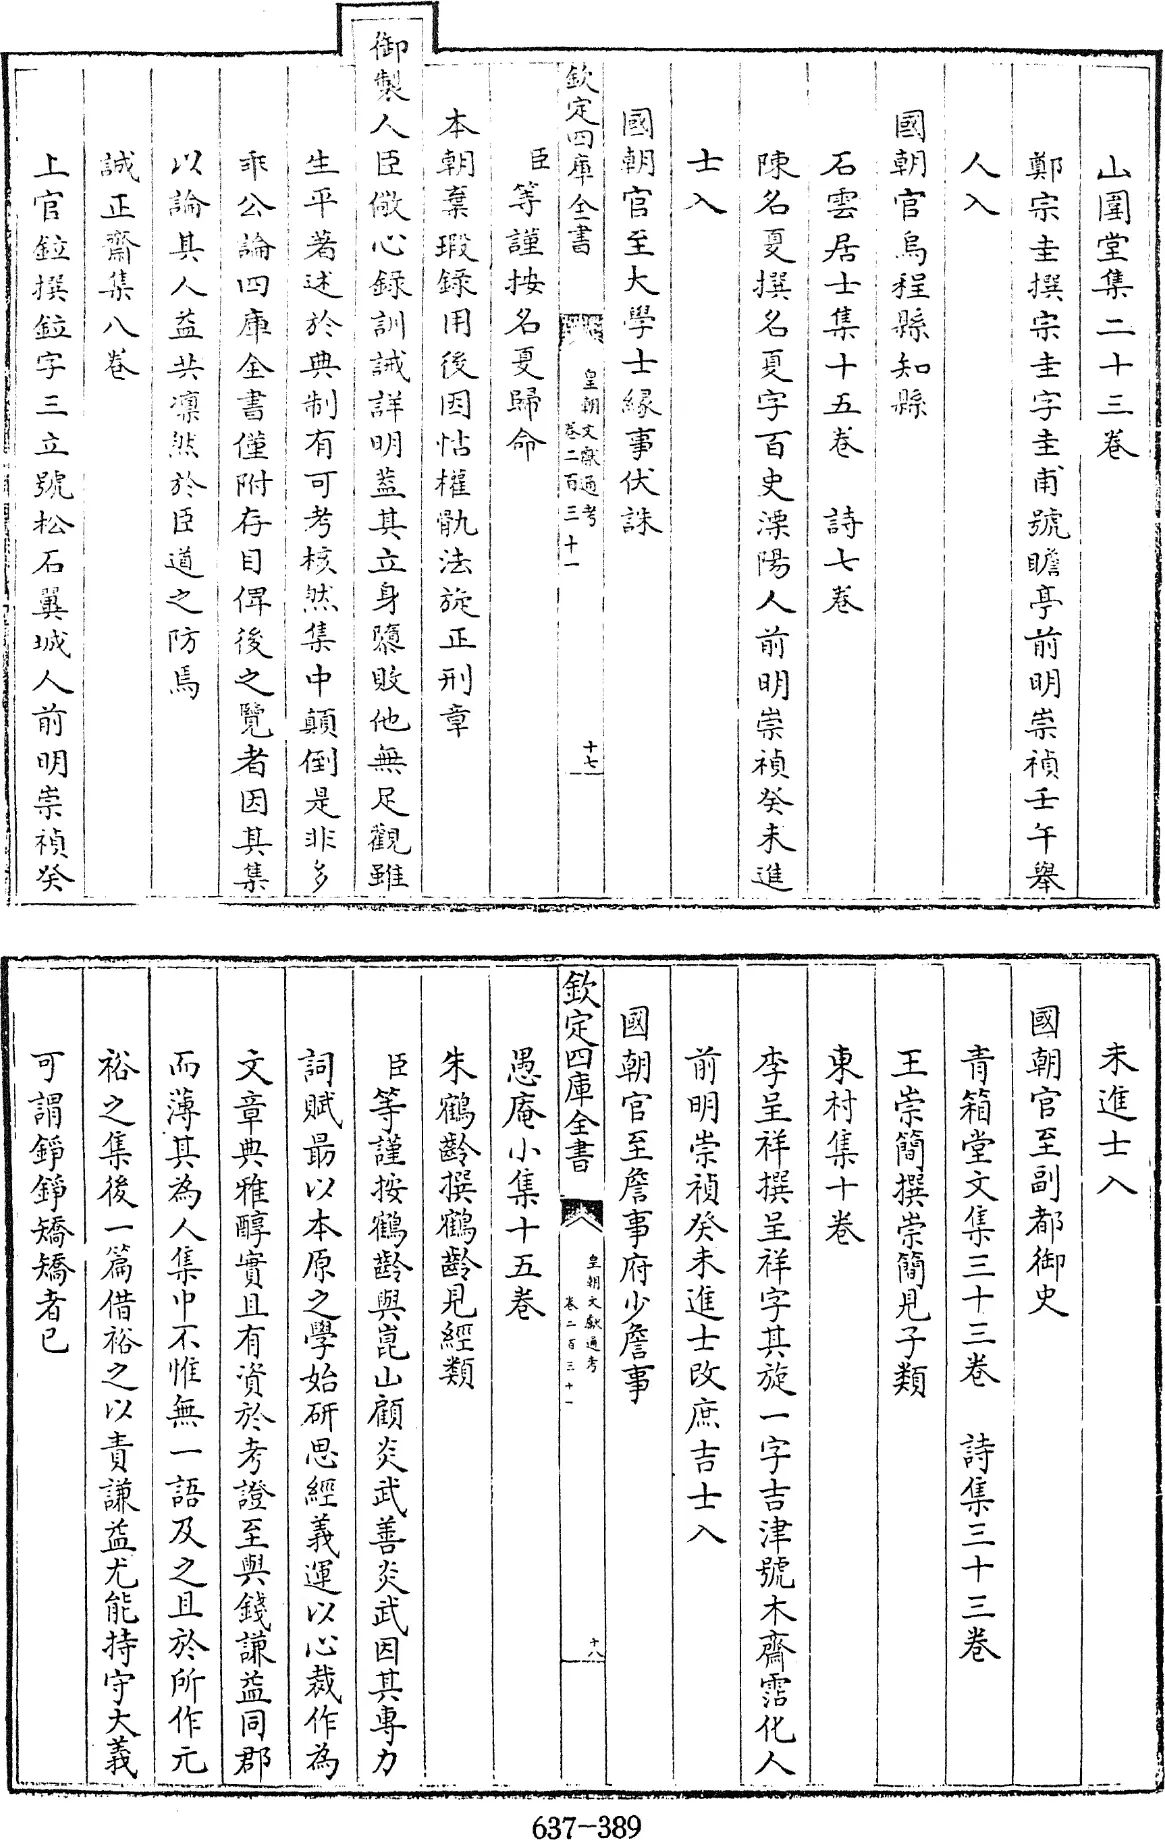 山圍堂集二十三卷
鄭宗圭撰宗圭字圭甫號瞻亭前明崇禎壬午舉
人入
國朝官烏程縣知縣
石雲居士集十五卷　詩七卷
陳名夏撰名夏字百史溧陽人前明崇禎癸未進
士入
國朝官至大學士緣事伏誅
欽定四庫全書
皇朝文獻通考
卷二百三十一
十七
臣等謹按名夏歸命
本朝棄瑕錄用後因怙權骫法旋正刑章
御製人臣儆心錄訓誡詳明蓋其立身隳敗他無足觀雖
生平著述於典制有可考核然集中顛倒是非多
乖公論四庫全書僅附存目俾後之覽者因其集
以論其人益共凛然於臣道之防焉
誠正齋集八卷
上官鉝撰鉝字三立號松石翼城人前明崇禎癸
未進士入
國朝官至副都御史
青箱堂文集三十三卷　詩集三十三卷
王崇簡撰崇簡見子類
東村集十卷
李呈祥撰呈祥字其旋一字吉津號木齋霑化人
前明崇禎癸未進士改庶吉士入
國朝官至詹事府少詹事
欽定四庫全書
皇朝文獻通考
卷二百三十一
十八
愚庵小集十五卷
朱鶴齡撰鶴齡見經類
臣等謹按鶴齡與崑山顧炎武善炎武因其專力
詞賦最以本原之學始研思經義運以心裁作為
文章典雅醇實且有資於考證至與錢謙益同郡
而薄其為人集中不惟無一語及之且於所作元
裕之集後一篇借裕之以責謙益尤能持守大義
可謂錚錚矯矯者已
637-389